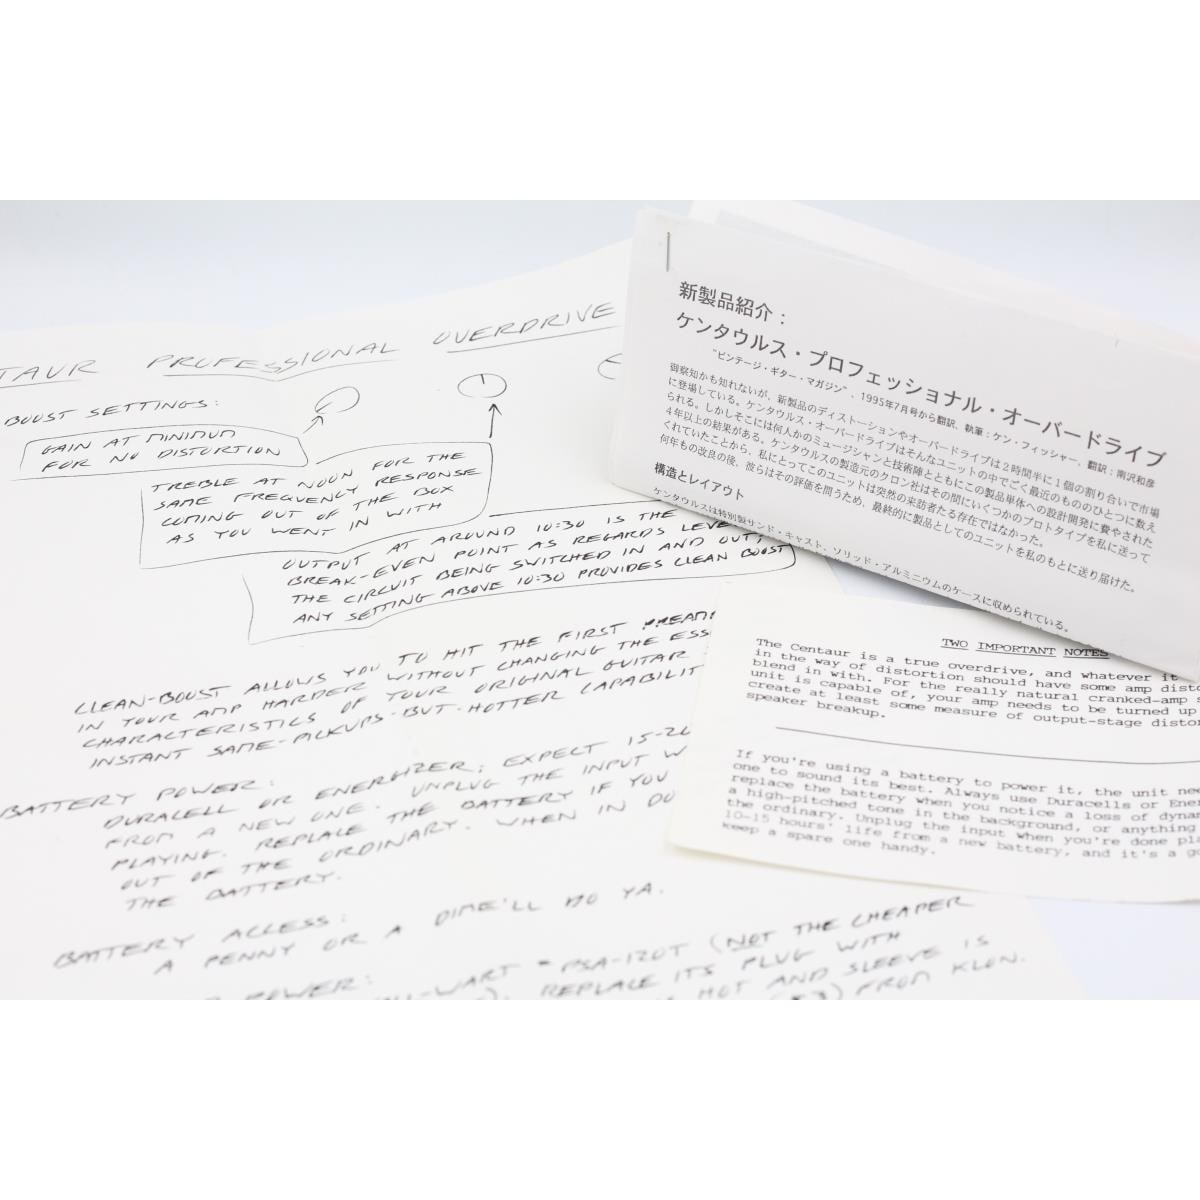 TAUR PROFESSIONAL OVERDRIVE
BOOST SETTINGS:
GAIN AT MINIMUM
FOR NO DISTORTION
TREBLE AT NOON FOR THE
SAME FREQUENCY RESPONSE
COMING OUT OF THE BOX
AS YOU WENT IN WITH
OUTPUT AT AROUND 10:30 IS THE
BREAK-EVEN POINT AS REGARDS LEVE
THE CIRCUIT BEING SWITCHED IN AND OUT;
ANY SETTING ABOVE 10:30 PROVIDES CLEAN BOOST
CLEAN-BOOST ALLOWS YOU TO HIT THE FIRST PREAM
IN YOUR AMP HARDER WITHOUT CHANGING THE ESS
CHARACTERISTICS OF YOUR ORIGINAL GUITAR
INSTANT SAME-PICKUPS-BUT-HOTTER CAPABILIT
BATTERY POWER:
DURACELL OR ENERGIZER; EXPECT 15-20
FROM A NEW ONE. UNPLUG THE INPUT W
PLAYING. REPLACE THE BATTERY IF YOU
OUT OF THE ORDINARY. WHEN IN DO
THE BATTERY.
BATTERY ACCESS:
A PENNY OR A DIME'LL DO YA.
POWER:
LL-WART = PSA-120T (NOT THE CHEAPER
REPLACE ITS PLUG WITH
HOT AND SLEEVE IS
($3) FROM KLON.
新製品紹介：
ケンタウルス・プロフェッショナル・オーバードライブ
"ビンテージ・ギター・マガジン"、1995年7月号から翻訳、執筆：ケン・フィッシャー、翻訳：南沢和彦
御察知かも知れないが、新製品のディストーションやオーバードライブは２時間半に１個の割り合いで市場
に登場している。ケンタウルス・オーバードライブはそんなユニットの中でごく最近のもののひとつに数え
られる。しかしそこには何人かのミュージシャンと技術陣とともにこの製品単体への設計開発に費やされた
4年以上の結果がある。ケンタウルスの製造元のクロン社はその間にいくつかのプロトタイプを私に送って
くれていたことから、私にとってこのユニットは突然の来訪者たる存在ではなかった。
何年もの改良の後、彼らはその評価を問うため、最終的に製品としてのユニットを私のもとに送り届けた。
構造とレイアウト
ケンタウルスは特別製サンド・キャスト、ソリッド・アルミニウムのケースに収められている。
TWO IMPORTANT NOTES
The Centaur is a true overdrive, and whatever it
in the way of distortion should have some amp disto
blend in with. For the really natural cranked-amp s
unit is capable of, your amp needs to be turned up
create at least some measure of output-stage distor
speaker breakup.
If you're using a battery to power it, the unit nee
one to sound its best. Always use Duracells or Ener
replace the battery when you notice a loss of dynam
a high-pitched tone in the background, or anything
the ordinary. Unplug the input when you're done pla
10-15 hours' life from a new battery, and it's a go
keep a spare one handy.